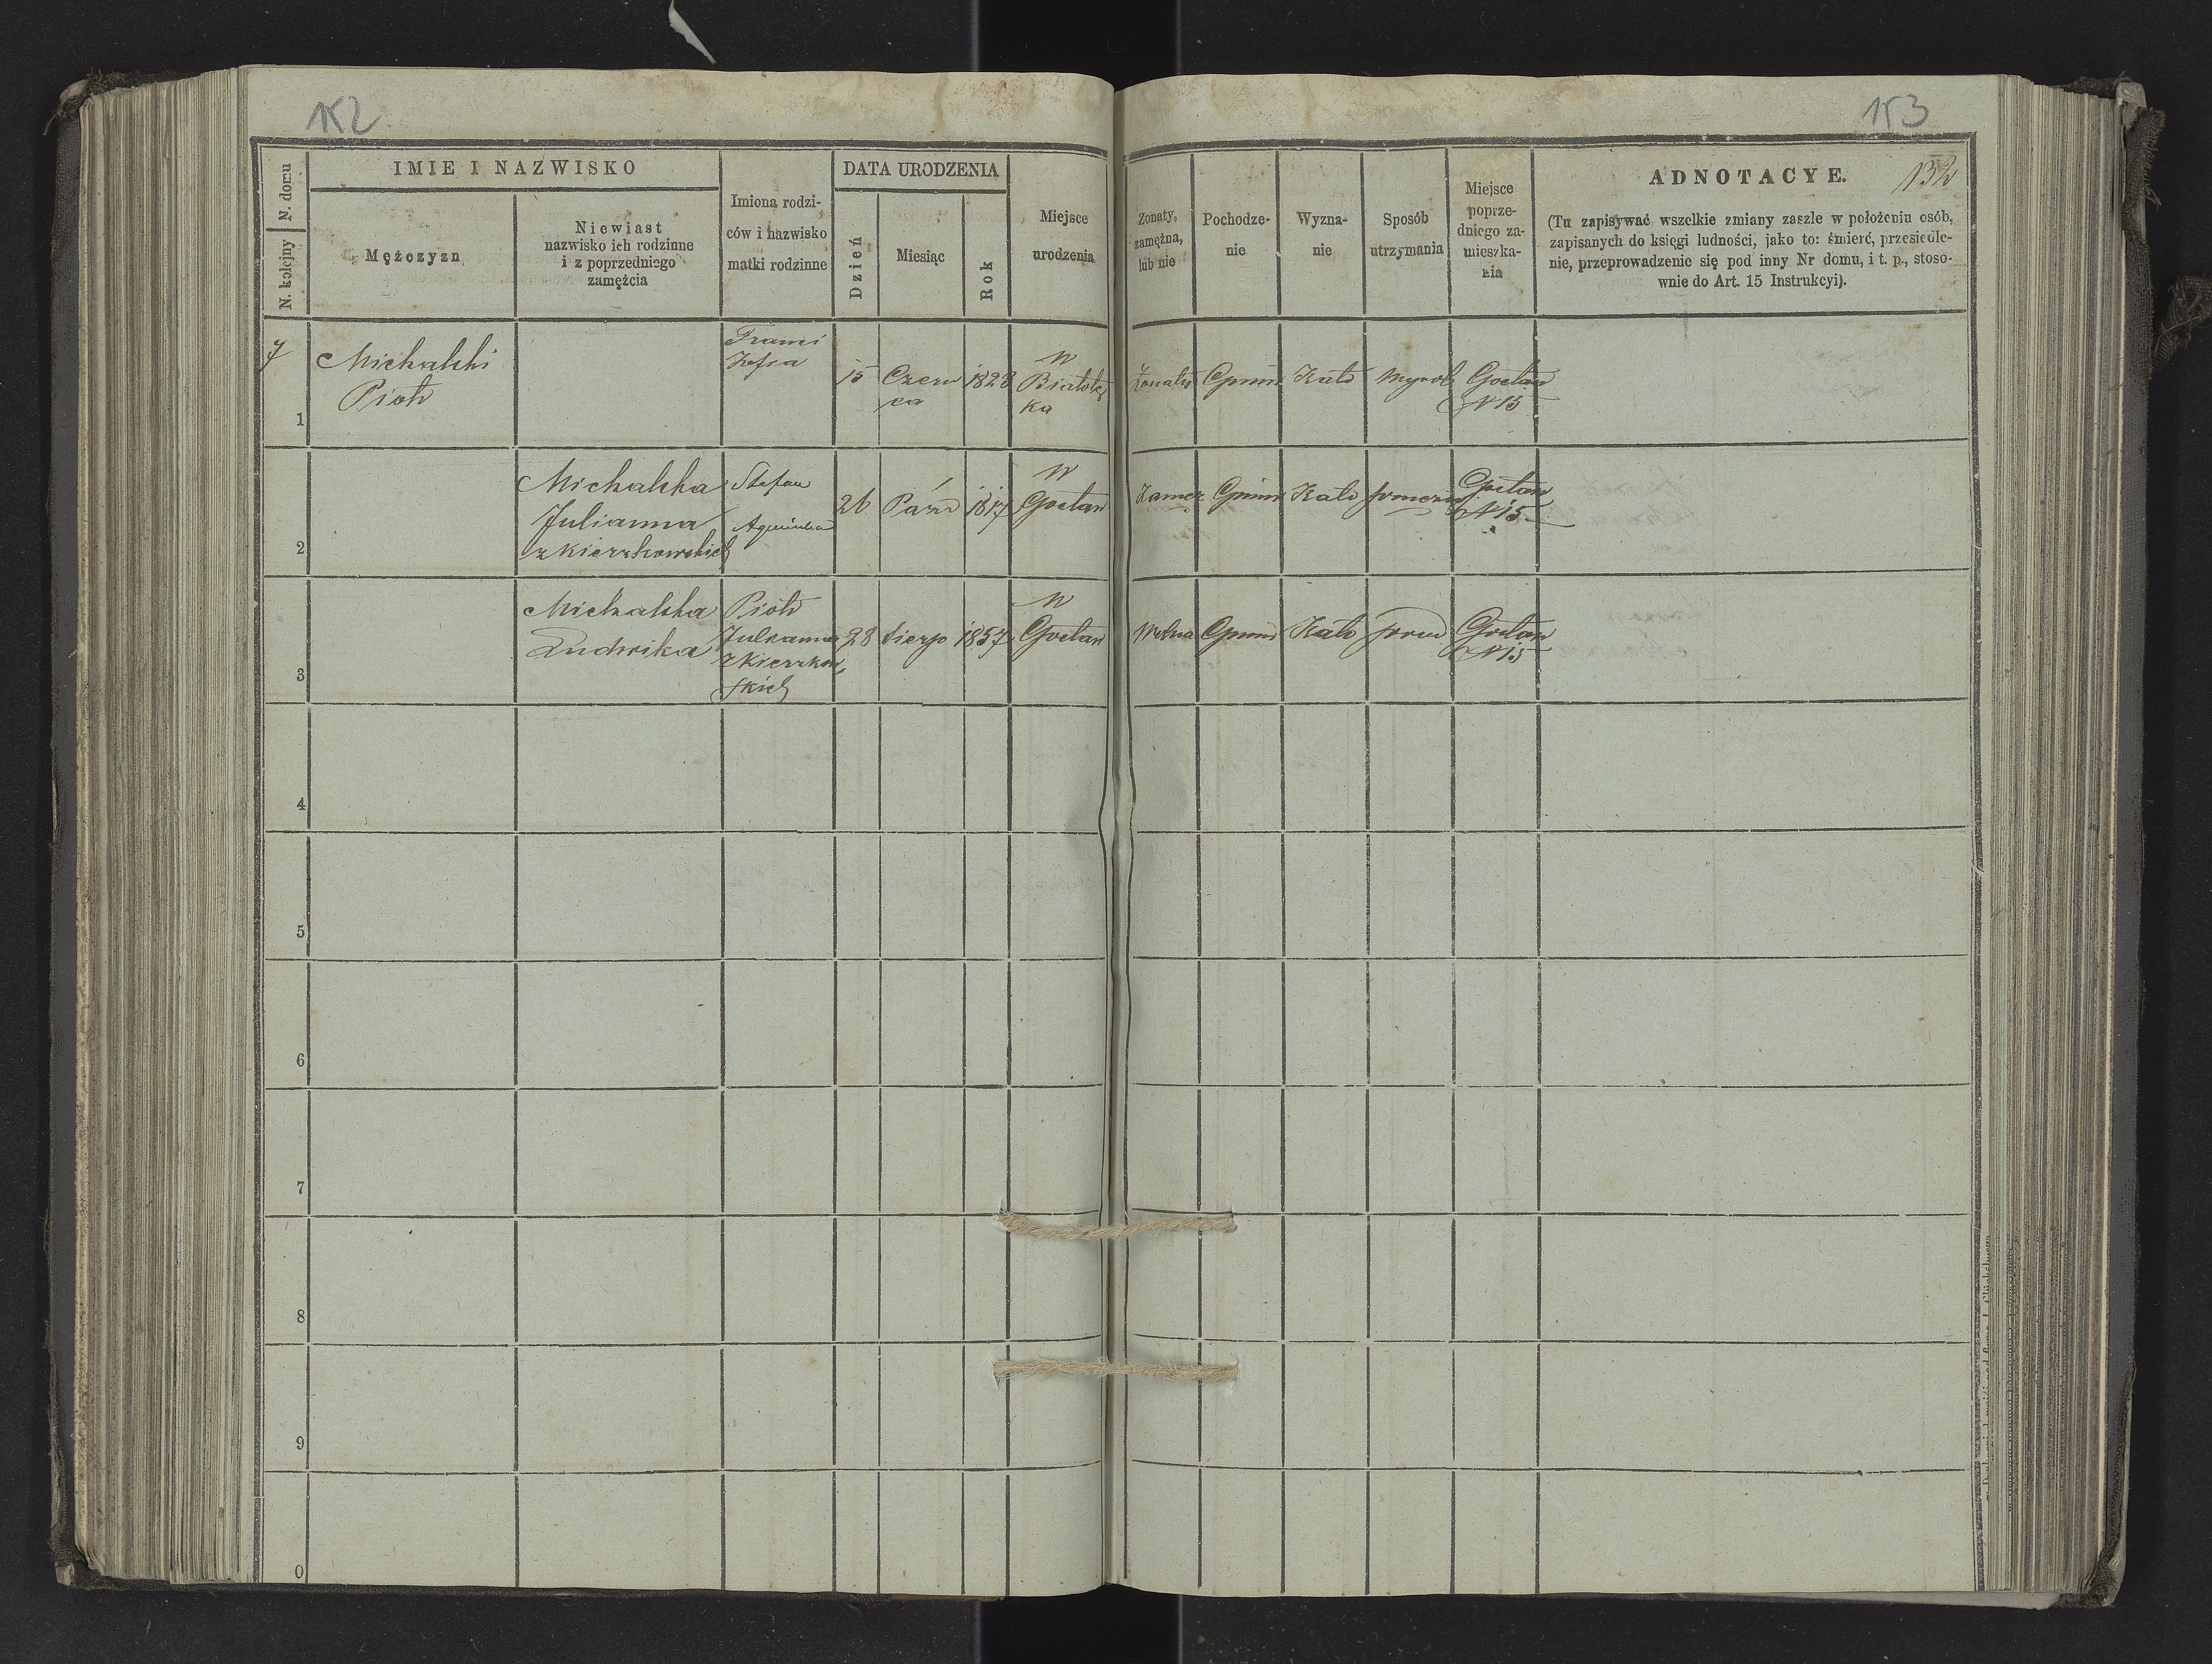 152
153
N. domu
N. kolejny
IMIE I NAZWISKO
Mężczyzn
Niewiast
nazwisko ich rodzinne
i z poprzedniego
zamężcia
Imiona rodzi-
ców i nazwisko
matki rodzinne
DATA URODZENIA
Dzień
Miesiąc
Rok
Miejsce
urodzenia
Żonaty,
zamężna,
lub nie
Pochodze-
nie
Wyzna-
nie
Sposób
utrzymania
Miejsce
poprze-
dniego za-
mieszka-
nia
ADNOTACYE.
132
(Tu zapisywać wszelkie zmiany zaszłe w położeniu osób,
zapisanych do księgi ludności, jako to: śmierć, przesiedle-
nie, przeprowadzenie się pod inny Nr domu, i t. p., stoso-
wnie do Art. 15 Instrukcyi).
7
1
Michalski
Piotr
15
Czerw
ca
1828
w
Białołę
ka
Żonaty
Gmin
Kato
wyrob
Gocław
N 15
2
Michalska
Julianna
z Kierzkowskich
Stefan
Agnieszka
26
Paźd
1817
w
Gocław
Zamęż
Gmin
Kato
Gocław
N 15
3
Michalska
Ludwika
Piotr
Julianna
z Kierzkow
skich
28
Sierp
1857
w
Gocław
Wolna
Gmin
Kato
Gocław
N 15
4
5
6
7
8
9
0